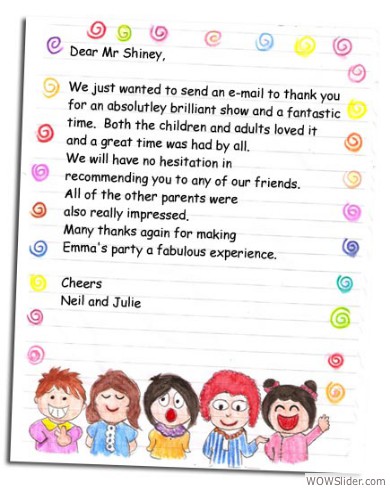 Dear Mr Shiney,
We just wanted to send an e-mail to thank you
for an absolutley brilliant show and a fantastic
time. Both the children and adults loved it
and a great time was had by all.
We will have no hesitation in
recommending you to any of our friends.
All of the other parents were
also really impressed.
Many thanks again for making
Emma's party a fabulous experience.
Cheers
Neil and Julie
WOWSlider.com